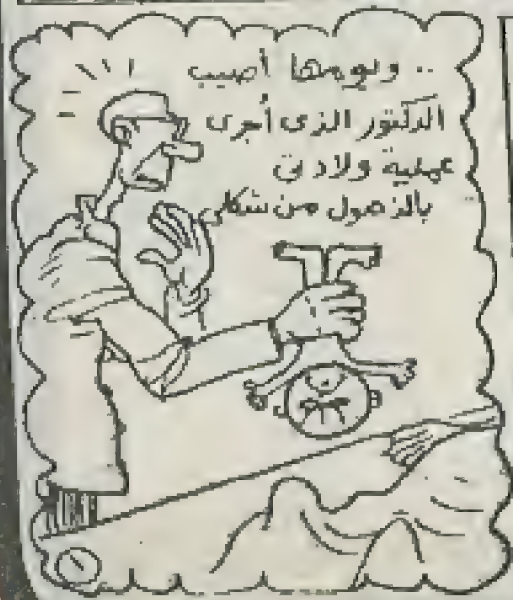 .. ويومها أصيب
الدكتور الذى أجرى
عملية ولادتى
بالذهول من شكلى